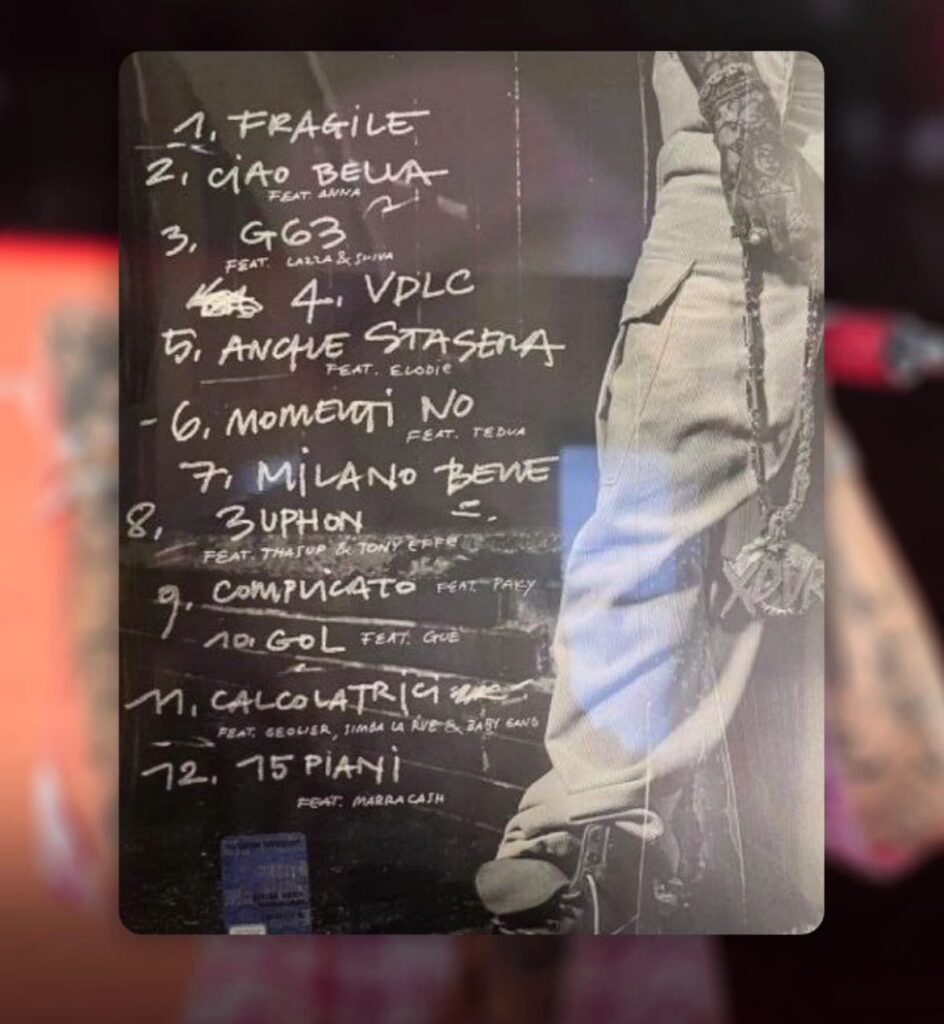 1. FRAGILE
2. CIAO BELLA
FEAT. ANNA
3. G63
FEAT. LAZZA & SHIVA
4. VDLC
5. ANCHE STASERA
FEAT. ELODIE
- 6. MOMENTI NO
FEAT. TEDUA
7. MILANO BENE
8. 3UPHON
FEAT. THASUP & TONY EFFE
9. COMPLICATO FEAT. PAKY
10. GOL FEAT. GUE
11. CALCOLATRICI
FEAT. GEOLIER, SIMBA LA RUE & BABY GANG
12. 15 PIANI
FEAT. MARRACASH